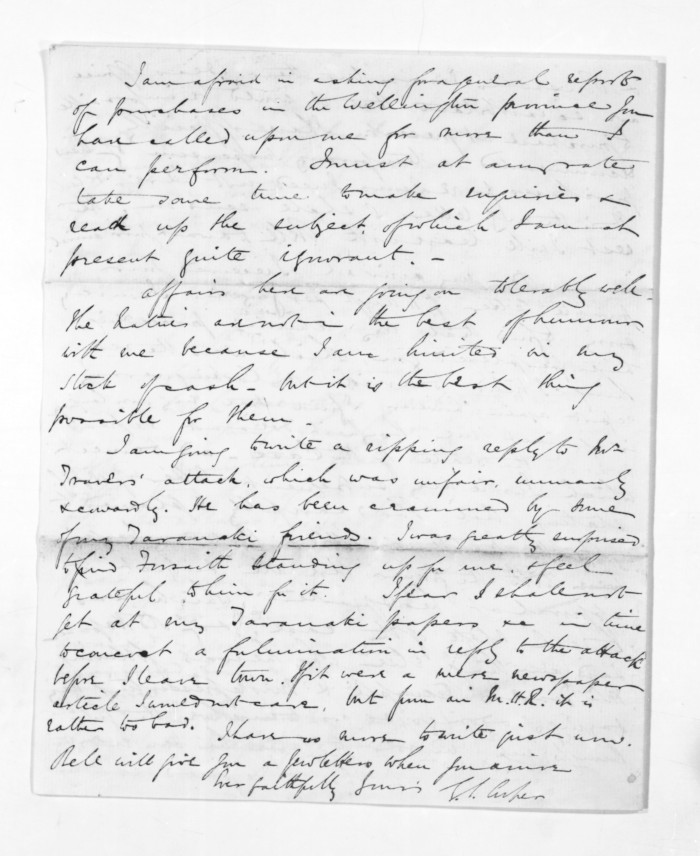 I am afraid in asking for a general report
of purchases in the Wellington province you
have called upon me for more than I
can perform. I must at any rate
take some time to make enquiries &
read up the subject of which I am at
present quite ignorant. -
affairs here are going on tolerably well.
The Natives are not in the best of humour
with me because I am limited in my
stock of cash - but it is the best thing
possible for them.
I am going to write a ripping reply to Mr
Travers' attack, which was unfair, unmanly
& cowardly. He has been examined by some
of my Taranaki friends. I was greatly surprised
to find Forsaith standing up for me, & feel
grateful to him for it. I fear I shall not
get at my Taranaki papers &c in time
to concoct a fulmination in reply to the attack
before I leave town. If it were a mere newspaper
article I should not care, but from an M.H.R. it is
rather too bad.
I have no more to write just now.
Bell will give you a few letters when you arrive
Ever faithfully Yours
G. S. Cooper